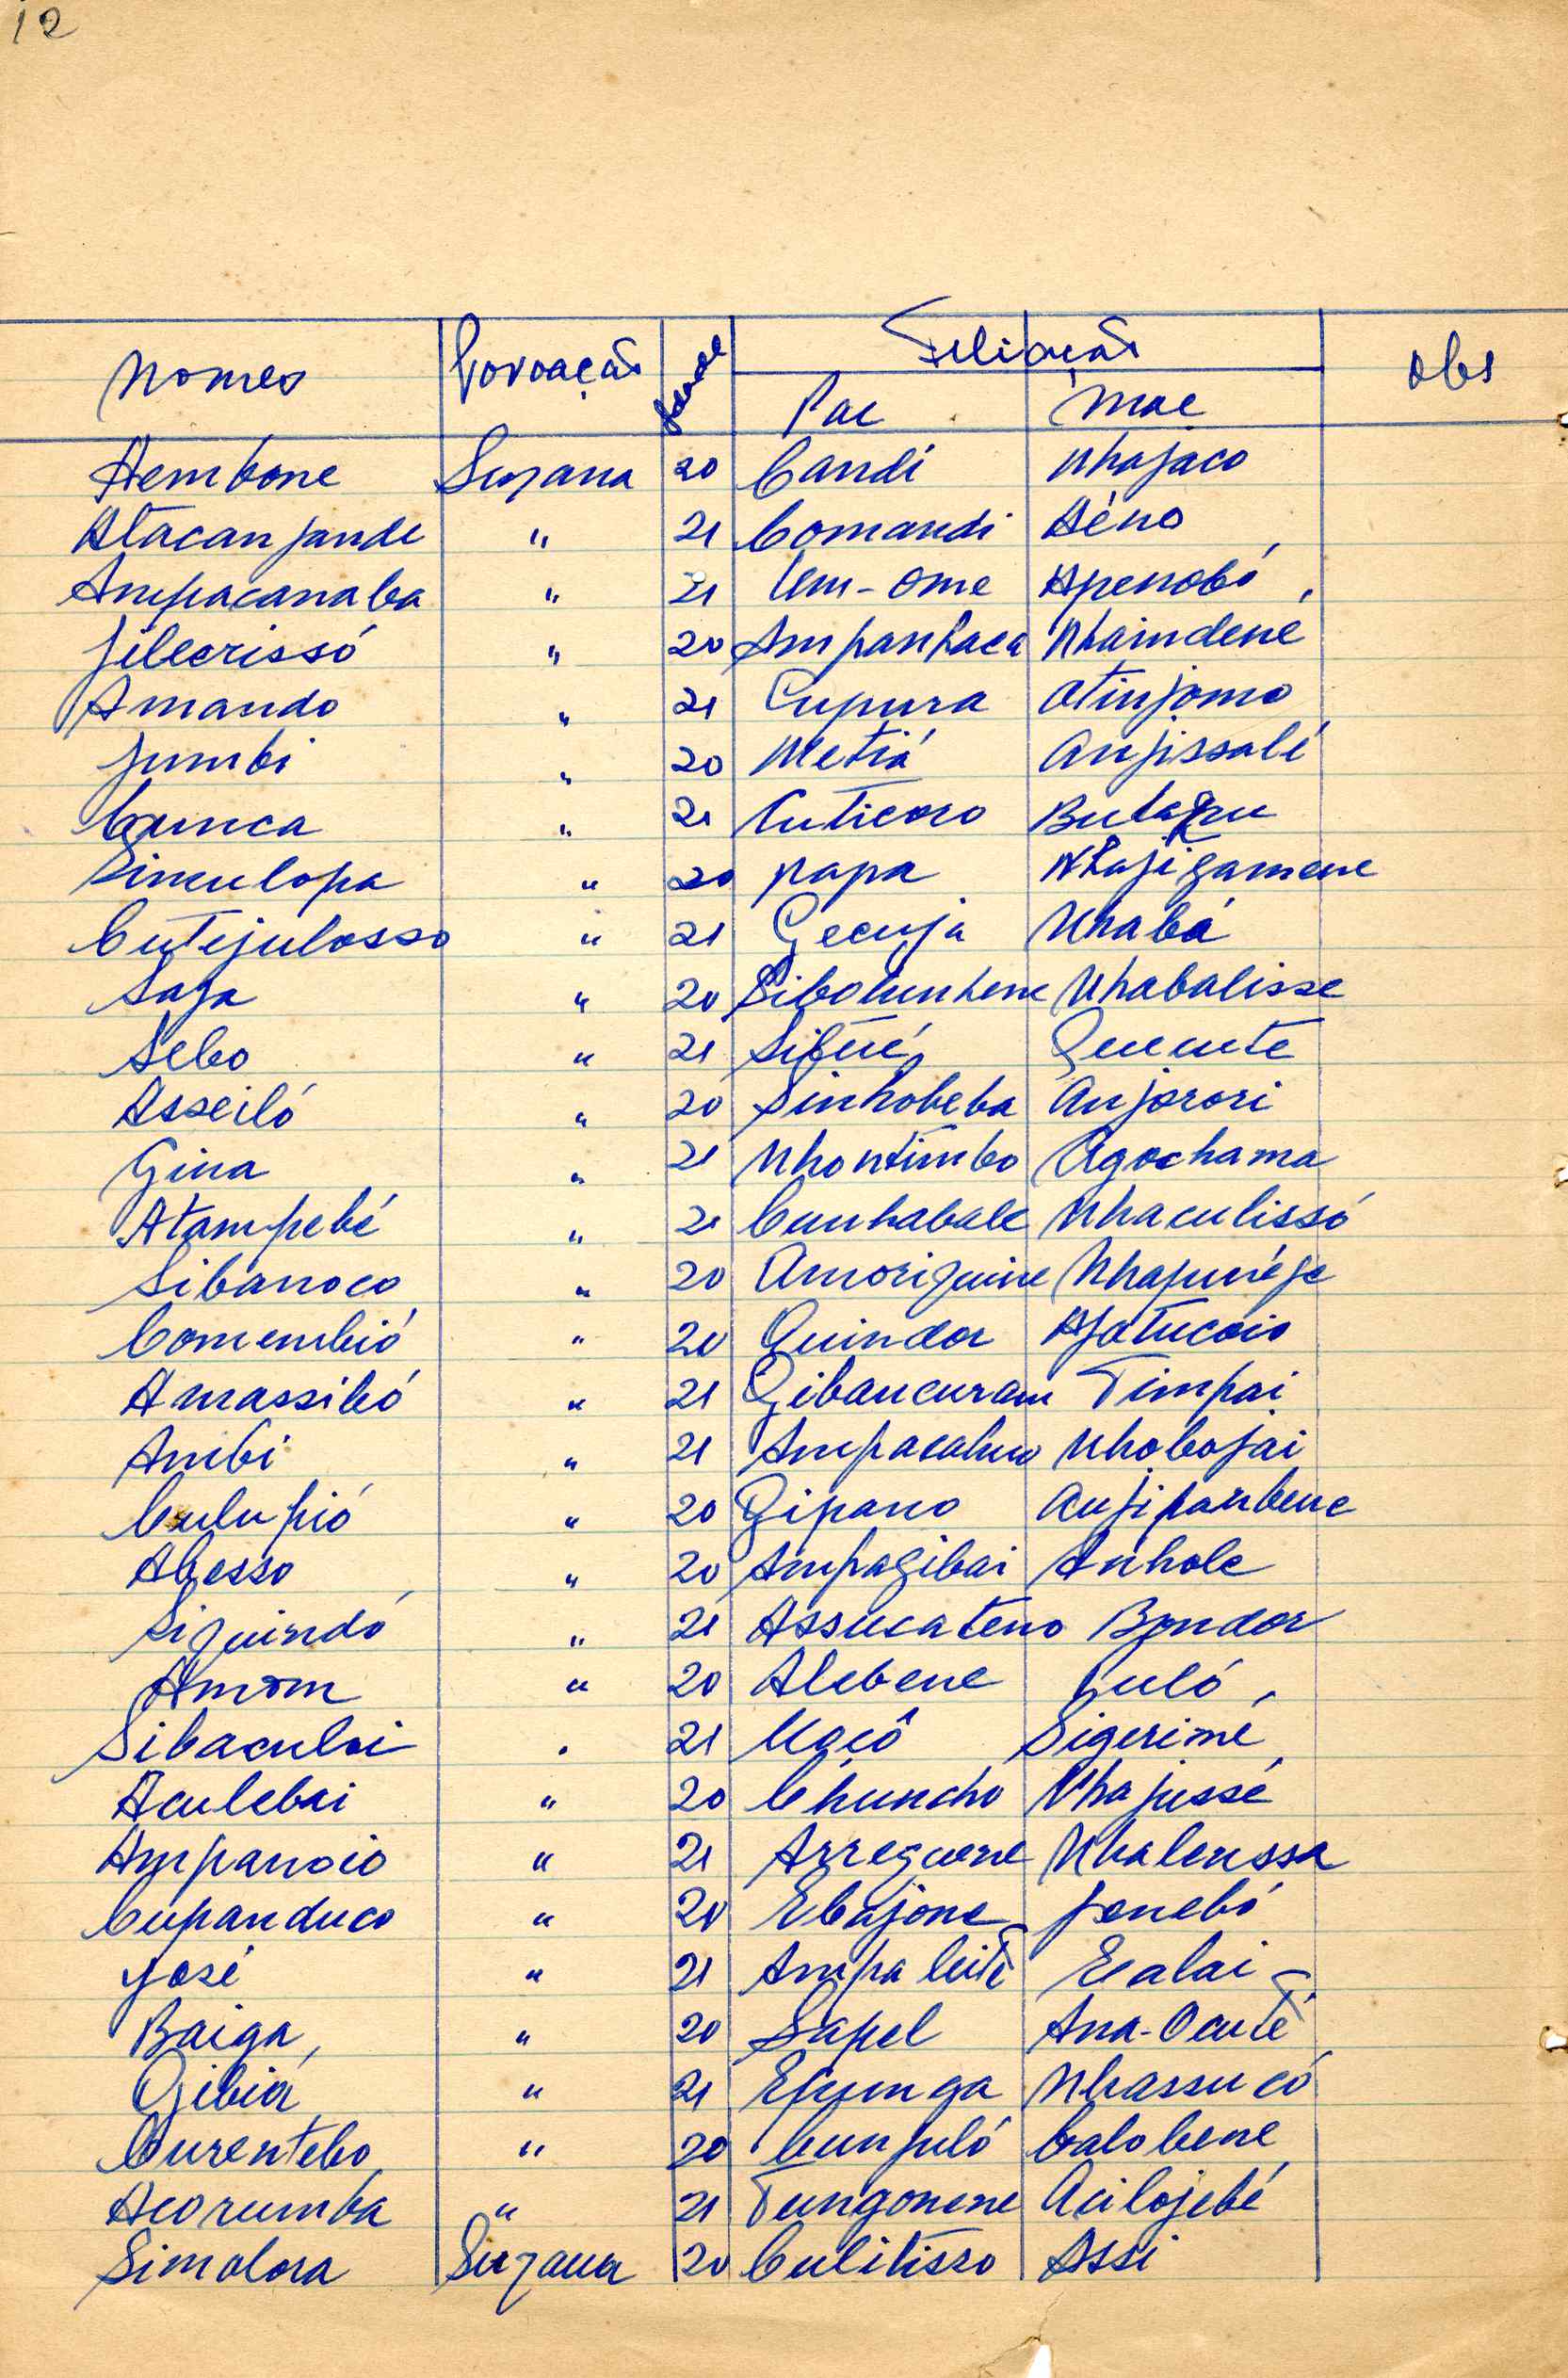 12
Nomes Povoação Idade Filiação Obs
Pae Mae
Aembone Suzana 20 Candi Nhajaco
Atacanjande " 21 Comandi Aéno
Ampacanaba " 21 Um-ome Apenobó
Jilecrissó " 20 Ampanhaca Nhaindené
Amando " 21 Cupura Atinjomo
Jumbi " 20 Metiá Anjissalé
Cunca " 21 Cuticoro
Sinculopa " 20 Papa Nhajigamene
Cutejulosso " 21 Gecuja Nhabá
Saja " 20 Nhabalisse
Sebo " 21 Situé Quecute
Asseiló " 20 Sinhobeba Anjorori
Gina " 21 Nhontimbo Agochama
Atampebé " 21 Cunhabale Nhaculissó
Sibanoco " 20 Amoriquine
Comembió " 20 Quindor
Amassibó " 21 Gibancuram Timpai
Ambi " 21 Nhobojai
Culupió " 20 Gipano Anjipanbene
Abesso " 20 Ampagibai Anhole
Siquindó " 21 Assucateno Bondor
Amom " 20 Alebene Juló
Sibaculai " 21 Macô Sigerimé
Aculebai " 20 Chuncho Nhajussé
Ampanoio " 21 Arreguene Nhalenssa
Cupanduco " 20 Ebajone Jenebó
José " 21 Ampa leité Ecalai
Baiga " 20 Sapel Ana-Ocuté
Gibia " 21 Efunga Nhassucó
Curentebo " 20 Cunjuló Calobene
Acorumba " 21 Tungonene Acilojebé
Simolora Suzana 20 Culitisso Assi